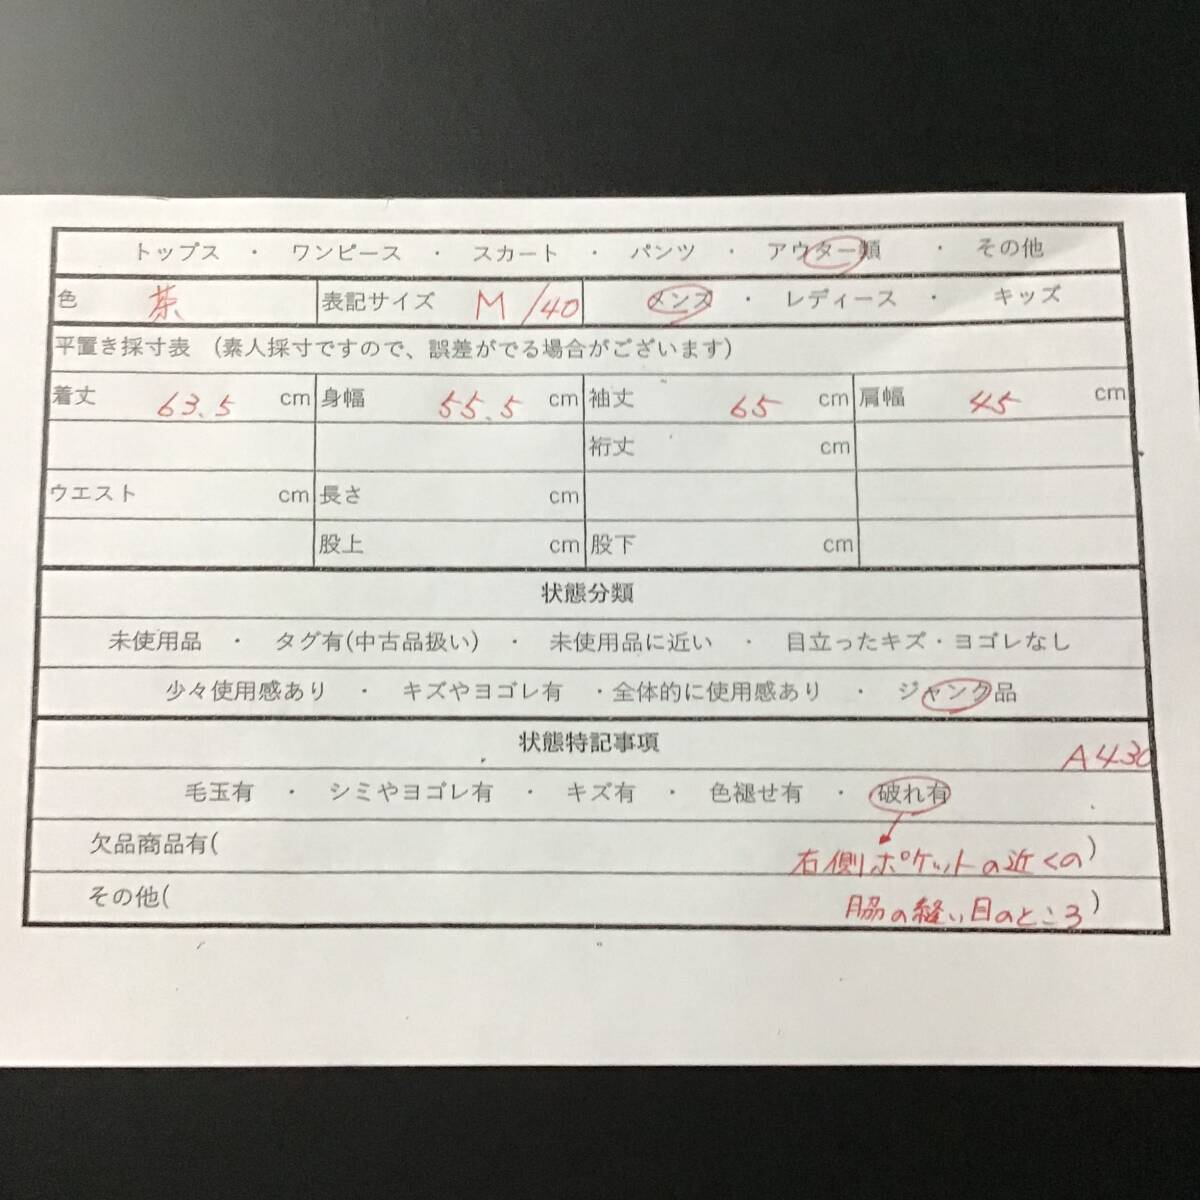 トップス ・ ワンピース ・ スカート ・ パンツ ・ アウター類 ・ その他
色 茶 表記サイズ M/40 メンズ ・ レディース ・ キッズ
平置き採寸表 (素人採寸ですので、誤差がでる場合がございます)
着丈 63.5 cm 身幅 55.5 cm 袖丈 65 cm 肩幅 45 cm
裄丈 cm
ウエスト cm 長さ cm
股上 cm 股下 cm
状態分類
未使用品 ・ タグ有(中古品扱い) ・ 未使用品に近い ・ 目立ったキズ・ヨゴレなし
少々使用感あり ・ キズやヨゴレ有 ・全体的に使用感あり ・ ジャンク品
状態特記事項
A430
毛玉有 ・ シミやヨゴレ有 ・ キズ有 ・ 色褪せ有 ・ 破れ有
欠品商品有( 右側ポケットの近くの )
その他( 脇の縫い目のところ )